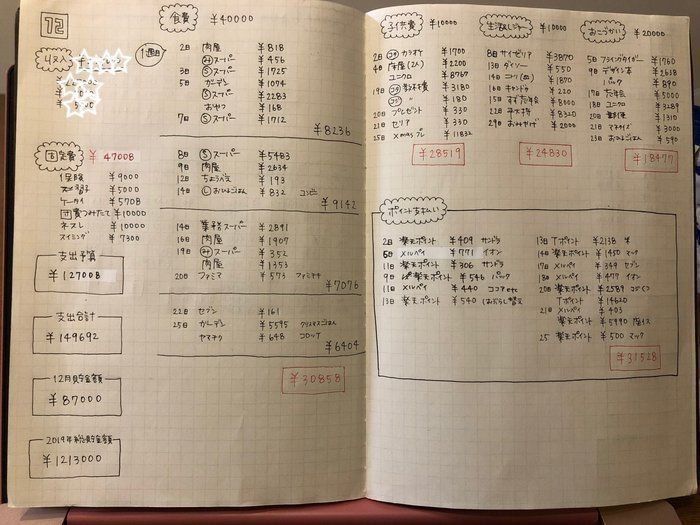 12
収入
固定費 ¥47008
保険 ¥9000
習字 ¥5000
ケータイ ¥5708
費つみたて ¥10000
ネスレ ¥10000
スイミング ¥7300
支出予算
¥127008
支出合計
¥149692
12月貯金額
¥87000
2019年総貯金額
¥1213000
食費 ¥40000
1週目
2日 肉屋 ¥818
スーパー ¥456
3日 Ⓢスーパー ¥1725
5日 ガーデン ¥1074
Ⓢスーパー ¥2283
おやつ ¥168
7日 Ⓢスーパー ¥1712
¥8236
8日 Ⓢスーパー ¥5483
9日 肉屋 ¥2634
12日 ¥193
14日 Ⓛおひるごはん ¥832 コンビニ
¥9142
14日 業務スーパー ¥2891
16日 肉屋 ¥1907
19日 スーパー ¥352
肉屋 ¥1353
20日 ファミマ ¥573 ファミチキ
¥7076
22日 セブン ¥161
25日 ガーデン ¥5595 クリスマスごはん
ヤマナカ ¥648 コロッケ
¥6404
¥30858
子供費 ¥10000
2日 カラオケ ¥1700
4日 床屋(2人) ¥2200
ユニクロ ¥8767
19日 ¥3180
¥180
20日 プレゼント ¥330
21日 セリア ¥330
25日 Xmasプレ ¥11832
¥28519
生活&レジャー ¥10000
8日 サイゼリヤ ¥3870
13日 ダイソー ¥550
14日 ニトリ ¥1870
16日 キャンドゥ ¥220
15日 忘年会 ¥8000
22日 ¥8320
29日 おみやげ ¥2000
¥24830
おこづかい ¥20000
5日 フライングタイガー ¥1760
9日 デザイン本 ¥2638
パック ¥890
17日 忘年会 ¥5000
18日 ユニクロ ¥3289
20日 郵便 ¥1310
21日 マネケン ¥3000
13日 おひるごはん ¥590
¥18477
ポイント支払い
2日 楽天ポイント ¥409 サンドラ
5日 メルペイ ¥771 イオン
11日 楽天ポイント ¥306 サンドラ
9日 楽天ポイント ¥546 パック
11日 メルペイ ¥440 ココアetc
13日 楽天ポイント ¥540 はぶらし替え
13日 Tポイント ¥2138 米
14日 楽天ポイント ¥1450 マック
17日 メルペイ ¥349 セブン
18日 メルペイ ¥477 イオン
20日 楽天ポイント ¥2589
Tポイント ¥14620
21日 メルペイ ¥403
楽天ポイント ¥5990 座イス
25 楽天ポイント ¥500 マック
¥31528